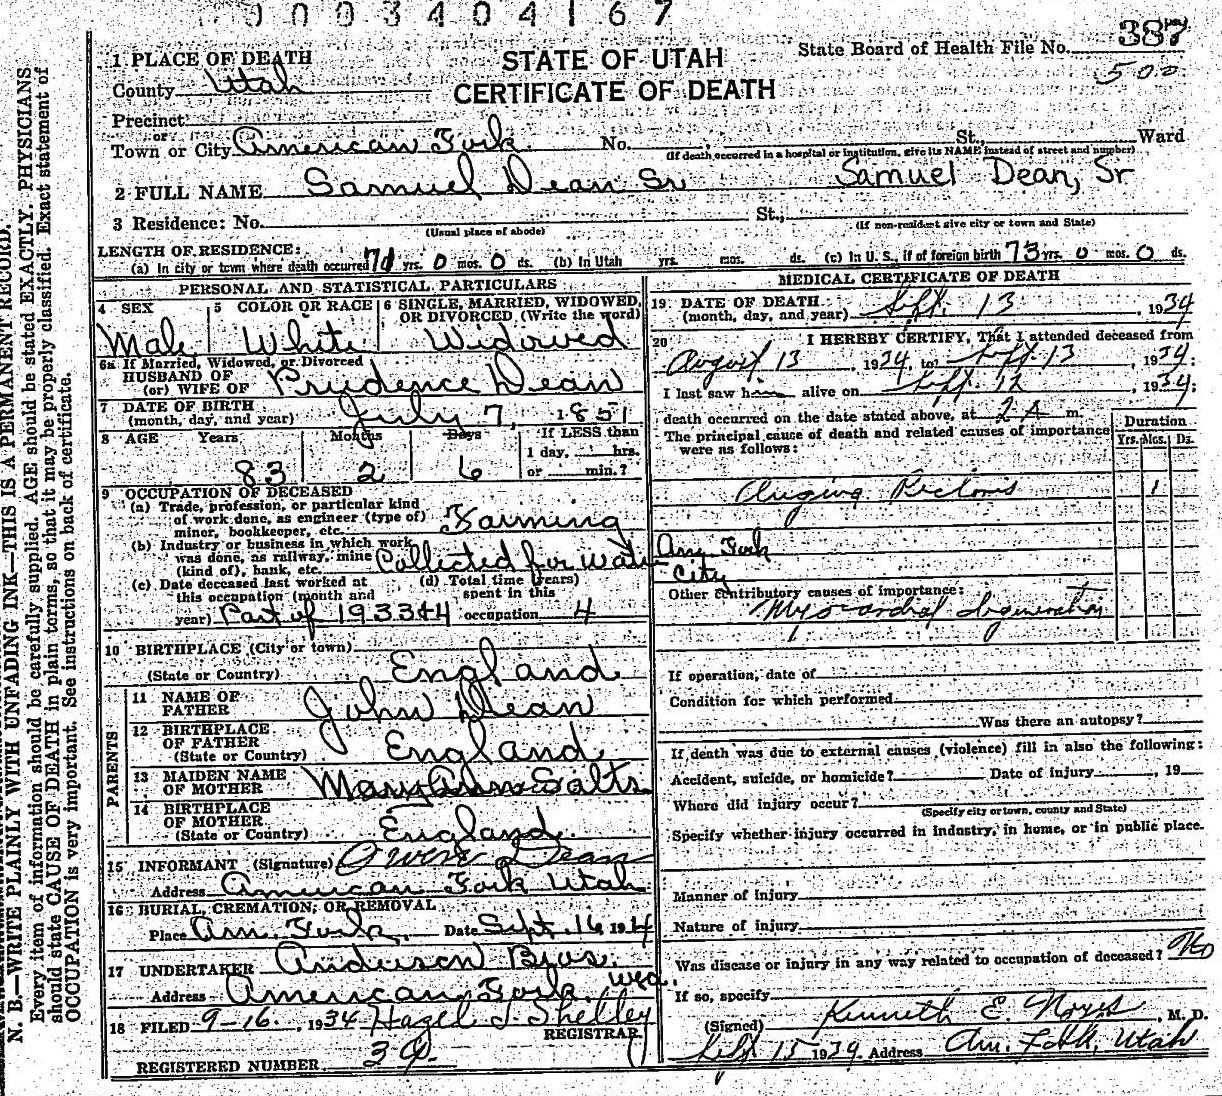 0003404167
387
State Board of Health File No.
500
STATE OF UTAH
CERTIFICATE OF DEATH
1 PLACE OF DEATH
County Utah
Precinct
or
Town or City American Fork No. St., Ward
(If death occurred in a hospital or institution, give its NAME instead of street and number)
2 FULL NAME Samuel Dean Sr Samuel Dean, Sr
3 Residence: No. St.,
(Usual place of abode) (If non-resident give city or town and State)
LENGTH OF RESIDENCE:
(a) In city or town where death occurred 71 yrs. 0 mos. 0 ds. (b) In Utah yrs. mos. ds. (c) In U. S., if of foreign birth 73 yrs. 0 mos. 0 ds.
PERSONAL AND STATISTICAL PARTICULARS
4 SEX 5 COLOR OR RACE 6 SINGLE, MARRIED, WIDOWED, OR DIVORCED (Write the word)
Male White Widowed
6a If Married, Widowed, or Divorced
HUSBAND OF
(or) WIFE OF Prudence Dean
7 DATE OF BIRTH
(month, day, and year) July 7, 1851
8 AGE Years Months Days If LESS than
1 day, hrs.
83 2 6 or min.?
9 OCCUPATION OF DECEASED
(a) Trade, profession, or particular kind
of work done, as engineer (type of)
minor, bookkeeper, etc. Farming
(b) Industry or business in which work
was done, as railway, mine
(kind of), bank, etc. Collected for Water Am Fork City
(c) Date deceased last worked at
this occupation (month and
year) Part of 1933+4
(d) Total time (years)
spent in this
occupation 4
10 BIRTHPLACE (City or town)
(State or Country) England
PARENTS
11 NAME OF
FATHER John Dean
12 BIRTHPLACE
OF FATHER
(State or Country) England
13 MAIDEN NAME
OF MOTHER Mary Ann Salts
14 BIRTHPLACE
OF MOTHER
(State or Country) England
15 INFORMANT (Signature) Owen Dean
Address American Fork Utah
16 BURIAL, CREMATION, OR REMOVAL
Place Am. Fork. Date Sept. 16, 1934
17 UNDERTAKER Anderson Bros.
Address American Fork.
18 FILED 9-16, 1934 Hazel J Shelley
REGISTRAR
REGISTERED NUMBER 34
MEDICAL CERTIFICATE OF DEATH
19 DATE OF DEATH
(month, day, and year) Sept. 13, 1934
20 I HEREBY CERTIFY, That I attended deceased from
August 13 1934 to Sept. 13, 1934;
I last saw him alive on Sept. 12, 1934;
death occurred on the date stated above, at 2 A m.
The principal cause of death and related causes of importance
were as follows:
Duration
Yrs. Mos. Ds.
Angina Pectoris 1
Other contributory causes of importance:
Myocardial degeneration
If operation, date of
Condition for which performed
Was there an autopsy?
If death was due to external causes (violence) fill in also the following:
Accident, suicide, or homicide? Date of injury , 19
Where did injury occur?
(Specify city or town, county and State)
Specify whether injury occurred in industry, in home, or in public place.
Manner of injury
Nature of injury
Was disease or injury in any way related to occupation of deceased? No
If so, specify
(Signed) Kenneth E. Noyes, M. D.
Sept 15 1934 Address Am. Fork, Utah
N. B.—WRITE PLAINLY WITH UNFADING INK—THIS IS A PERMANENT RECORD.
Every item of information should be carefully supplied. AGE should be stated EXACTLY. PHYSICIANS
should state CAUSE OF DEATH in plain terms, so that it may be properly classified. Exact statement of
OCCUPATION is very important. See instructions on back of certificate.